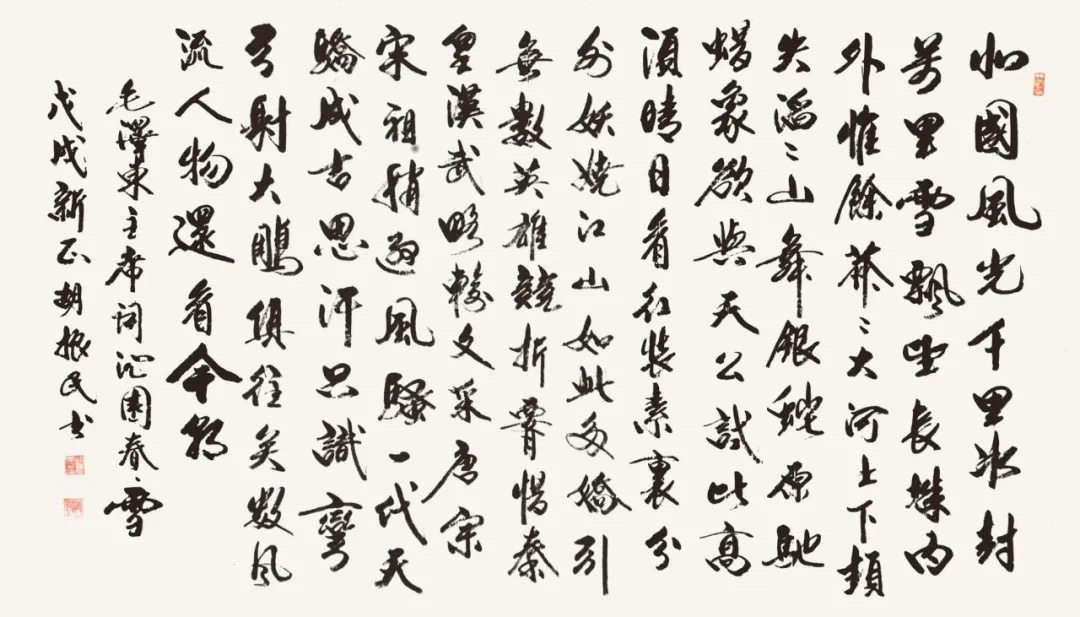 北國風光千里冰封
萬里雪飄望長城内
外惟餘莽〻大河上下頓
失滔〻山舞銀蛇原馳
蜡象欲與天公試比高
須晴日看紅裝素裹分
外妖嬈江山如此多嬌引
無數英雄競折腰惜秦
皇漢武略輸文采唐宗
宋祖稍遜風騷一代天
驕成吉思汗只識彎
弓射大鵰俱往矣數風
流人物還看今朝
毛澤東主席詞沁園春·雪
戊戌新正胡振民书